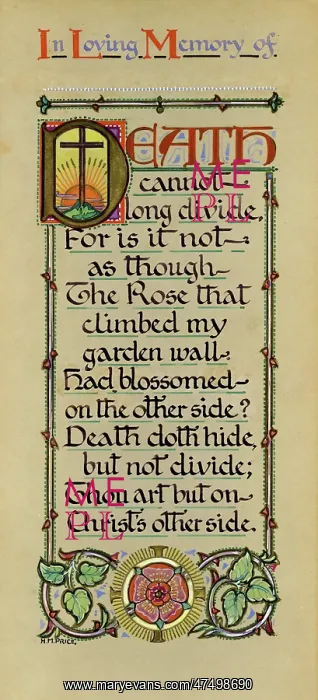 In Loving Memory of
DEATH
cannot
long divide,
For is it not—
as though—
The Rose that
climbed my
garden wall—
Had blossomed—
on the other side?
Death doth hide,
but not divide;
Thou art but on—
Christ's other side.
H.M.PRICE.
ME
PL
ME
PL
www.maryevans.com/47498690